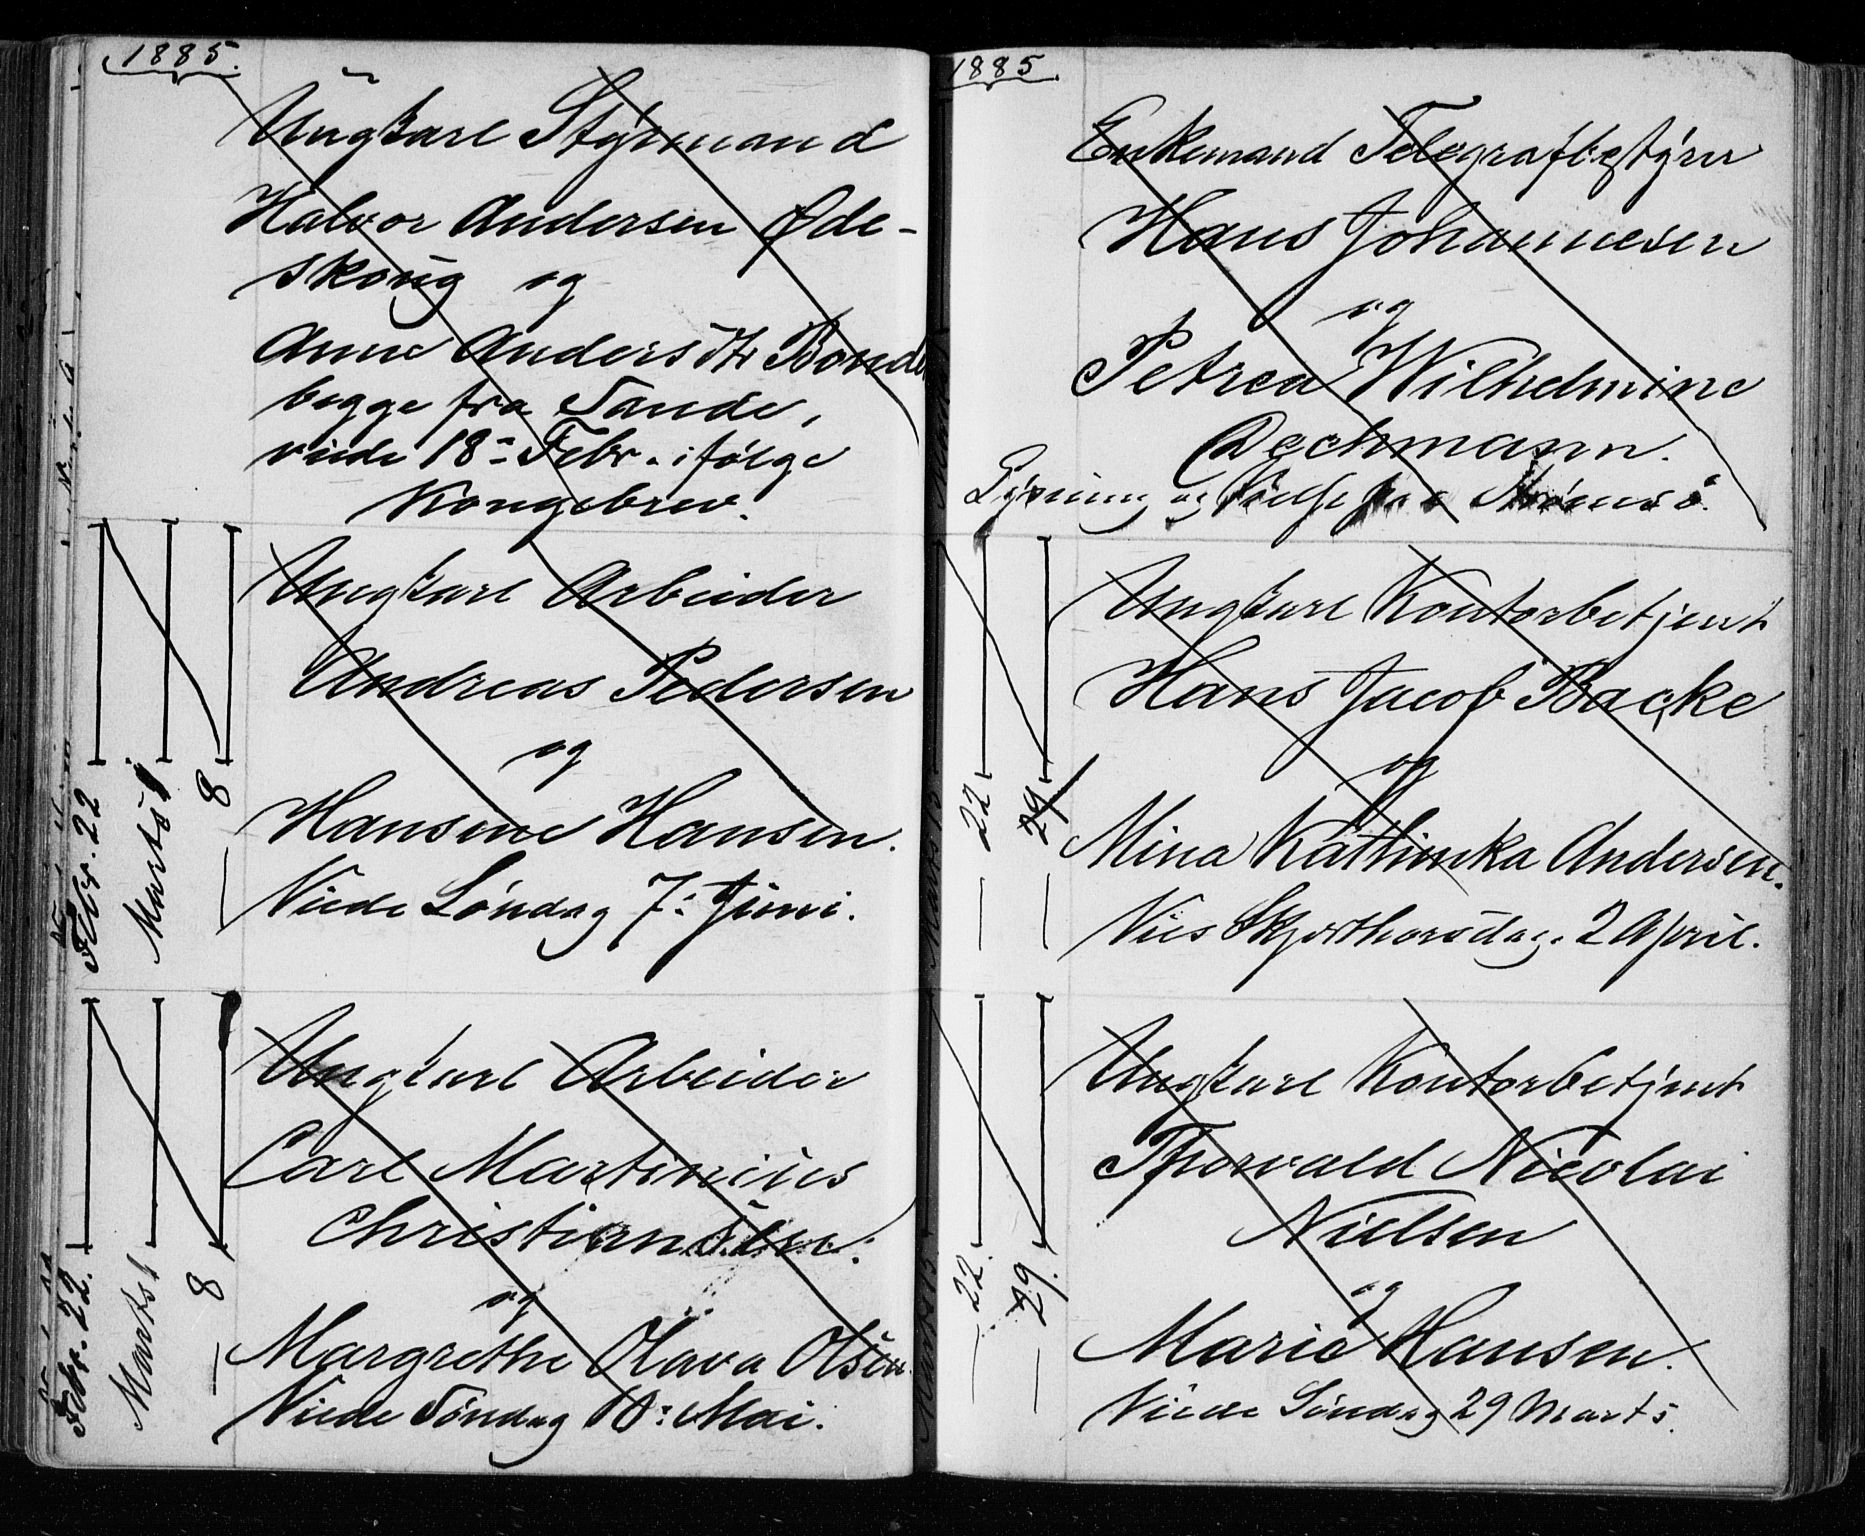 1885.
Ungkarl Styrmand
Halvor Andersen Øde-
skoug og
Anne Andersdtr Bonde
begge fra Sande,
viede 18de Febr. ifølge
Kongebrev.
Febr. 22
Marts 1
— 8
Ungkarl Arbeider
Andreas Pedersen
og
Hansine Hansen.
Viede Søndag 7: Juni.
Febr. 22.
Marts 1
— 8
Ungkarl Arbeider
Carl Martinius
Christiansen.
og
Margrethe Olava Olsen.
Viede Søndag : Mai.
1885.
Enkemand Telegrafbestyrer
Hans Johannesen
og
Petrea Wilhelmine
Dechmann.
Lysning og Vielse paa Strømsø.
Marts 15
— 22
— 29
Ungkarl Kontorbetjent
Hans Jacob Backe
og
Mina Kathinka Andersen.
Vies Skjærthorsdag. 2 April.
Marts 15
— 22.
— 29.
Ungkarl Kontorbetjent
Thorvald Nicolai
Nielsen
og
Marie Hansen.
Viede Søndag 29 Marts.